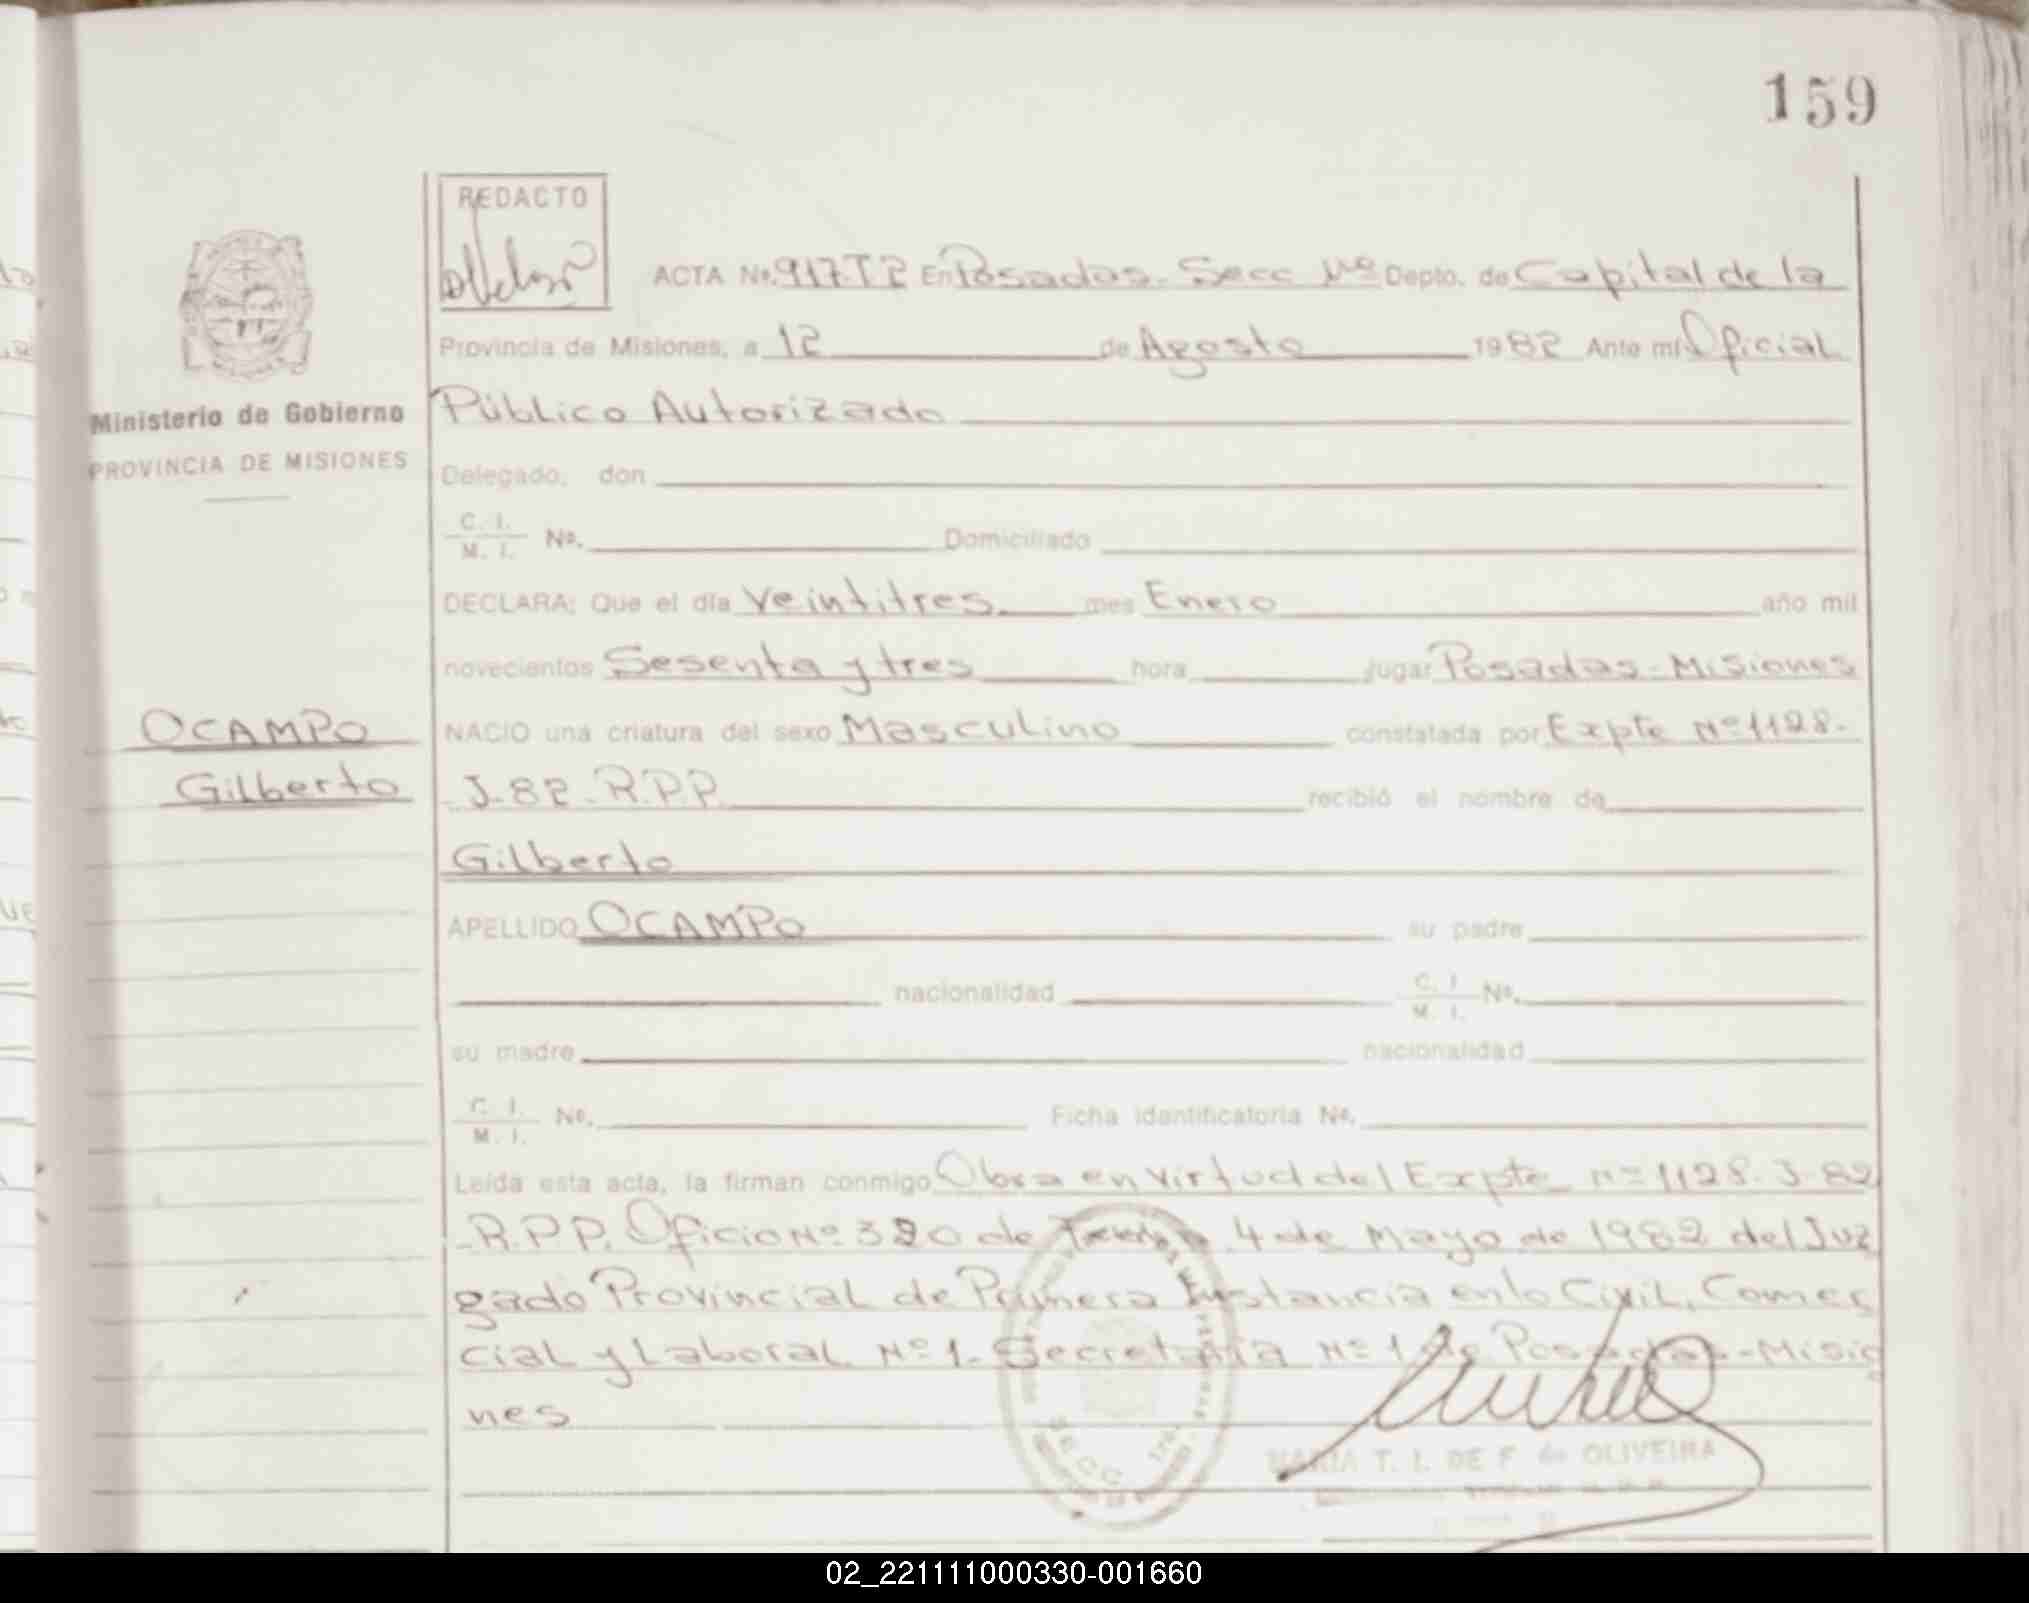 159
REDACTO
ACTA No. 917.T2 En Posadas - Secc Nº Depto. de Capital de la
Provincia de Misiones, a 12 de Agosto 1982 Ante mí Oficial
Público Autorizado
Ministerio de Gobierno
PROVINCIA DE MISIONES
Delegado, don
C. I.
M. I. No. Domiciliado
DECLARA: Que el día Veintitres mes Enero año mil
novecientos Sesenta y tres hora lugar Posadas - Misiones
OCAMPO
Gilberto
NACIO una criatura del sexo Masculino constatada por Expte Nº 1128.
J-82-R.P.P. recibió el nombre de
Gilberto
APELLIDO OCAMPO su padre
nacionalidad C. I. M. I. No.
su madre nacionalidad
C. I.
M. I. No. Ficha identificatoria No.
Leída esta acta, la firman conmigo Obra en virtud del Expte Nº 1128-J-82
-R.P.P. Oficio Nº 320 de 4 de Mayo de 1982 del Juz
gado Provincial de Primera Instancia en lo Civil, Comer
cial y Laboral Nº 1 - Secretaria Nº 1 de Posadas - Misio
nes
SECC
MARIA T. I. DE F. de OLIVEIRA
02_221111000330-001660